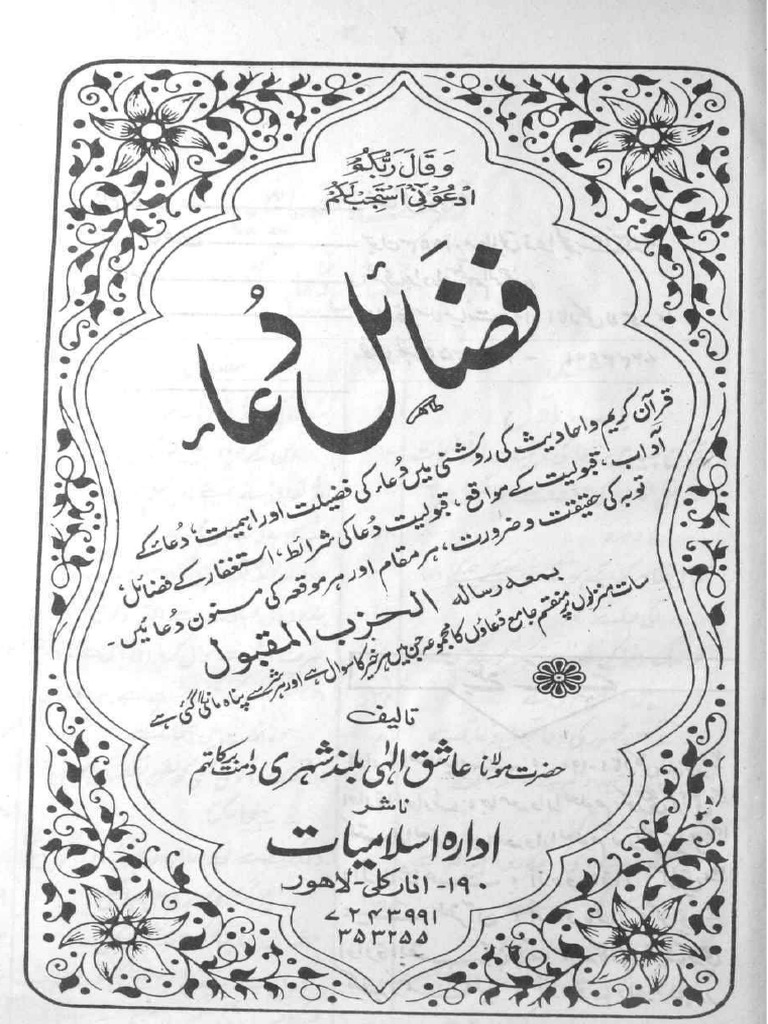 وَقَالَ رَبُّكُمُ
ادْعُوْنِیْٓ اَسْتَجِبْ لَکُمْ
فضائلِ دُعاء
قرآن کریم و احادیث کی روشنی میں دُعاء کی فضیلت اور اہمیت، دُعاء کے
آداب، قبولیت کے مواقع، قبولیت دُعا کی شرائط، استغفار کے فضائل
توبہ کی حقیقت و ضرورت، ہر مقام اور ہر موقعہ کی مسنون دُعائیں۔
بمعہ رسالہ الحزب المقبول
سات منزلوں پر منقسم جامع دُعاؤں کا مجموعہ جن میں ہر خیر کا سوال ہے اور ہر شر سے پناہ مانگی گئی ہے
تالیف
حضرت مولانا عاشق الٰہی بلند شہری دامت برکاتہم
ناشر
ادارہ اسلامیات
۱۹۰- انار کلی- لاہور
۷۲۴۳۹۹۱
۳۵۳۲۵۵